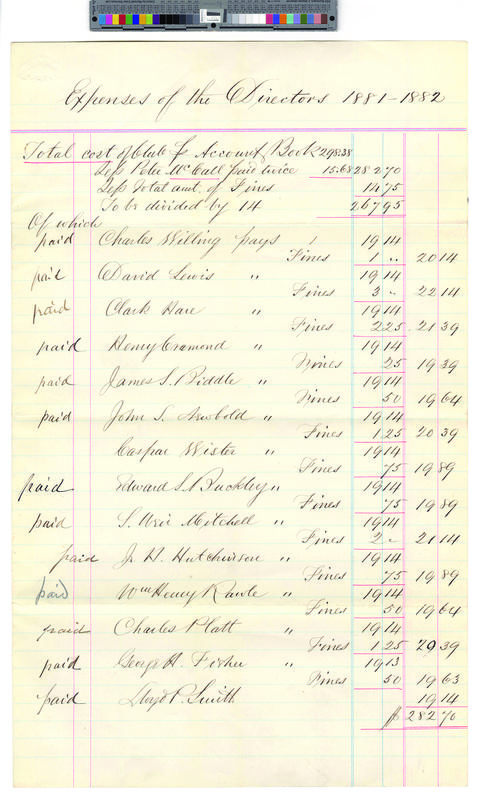 Expenses of the Directors 1881-1882
Total cost of Club pr Account Book 298.38
Less Peter McCall paid twice 15.68 282 70
Less Total amt. of Fines 14 75
To be divided by 14 267 95
Of which
paid Charles Willing pays 19 14
Fines 1 " 20 14
paid David Lewis " 19 14
Fines 3 " 22 14
paid Clark Hare " 19 14
Fines 2 25 21 39
paid Henry Cramond " 19 14
Fines 25 19 39
paid James S. Biddle " 19 14
Fines 50 19 64
paid John S. Newbold " 19 14
Fines 1 25 20 39
Caspar Wister " 19 14
Fines 75 19 89
paid Edward S. Buckley " 19 14
Fines 75 19 89
paid S. Weir Mitchell " 19 14
Fines 2 " 21 14
paid J. H. Hutchinson " 19 14
Fines 75 19 89
paid Wm Henry Rawle " 19 14
Fines 50 19 64
paid Charles Platt " 19 14
Fines 1 25 20 39
paid George H. Fisher " 19 13
Fines 50 19 63
paid Lloyd P. Smith 19 14
$ 282 70